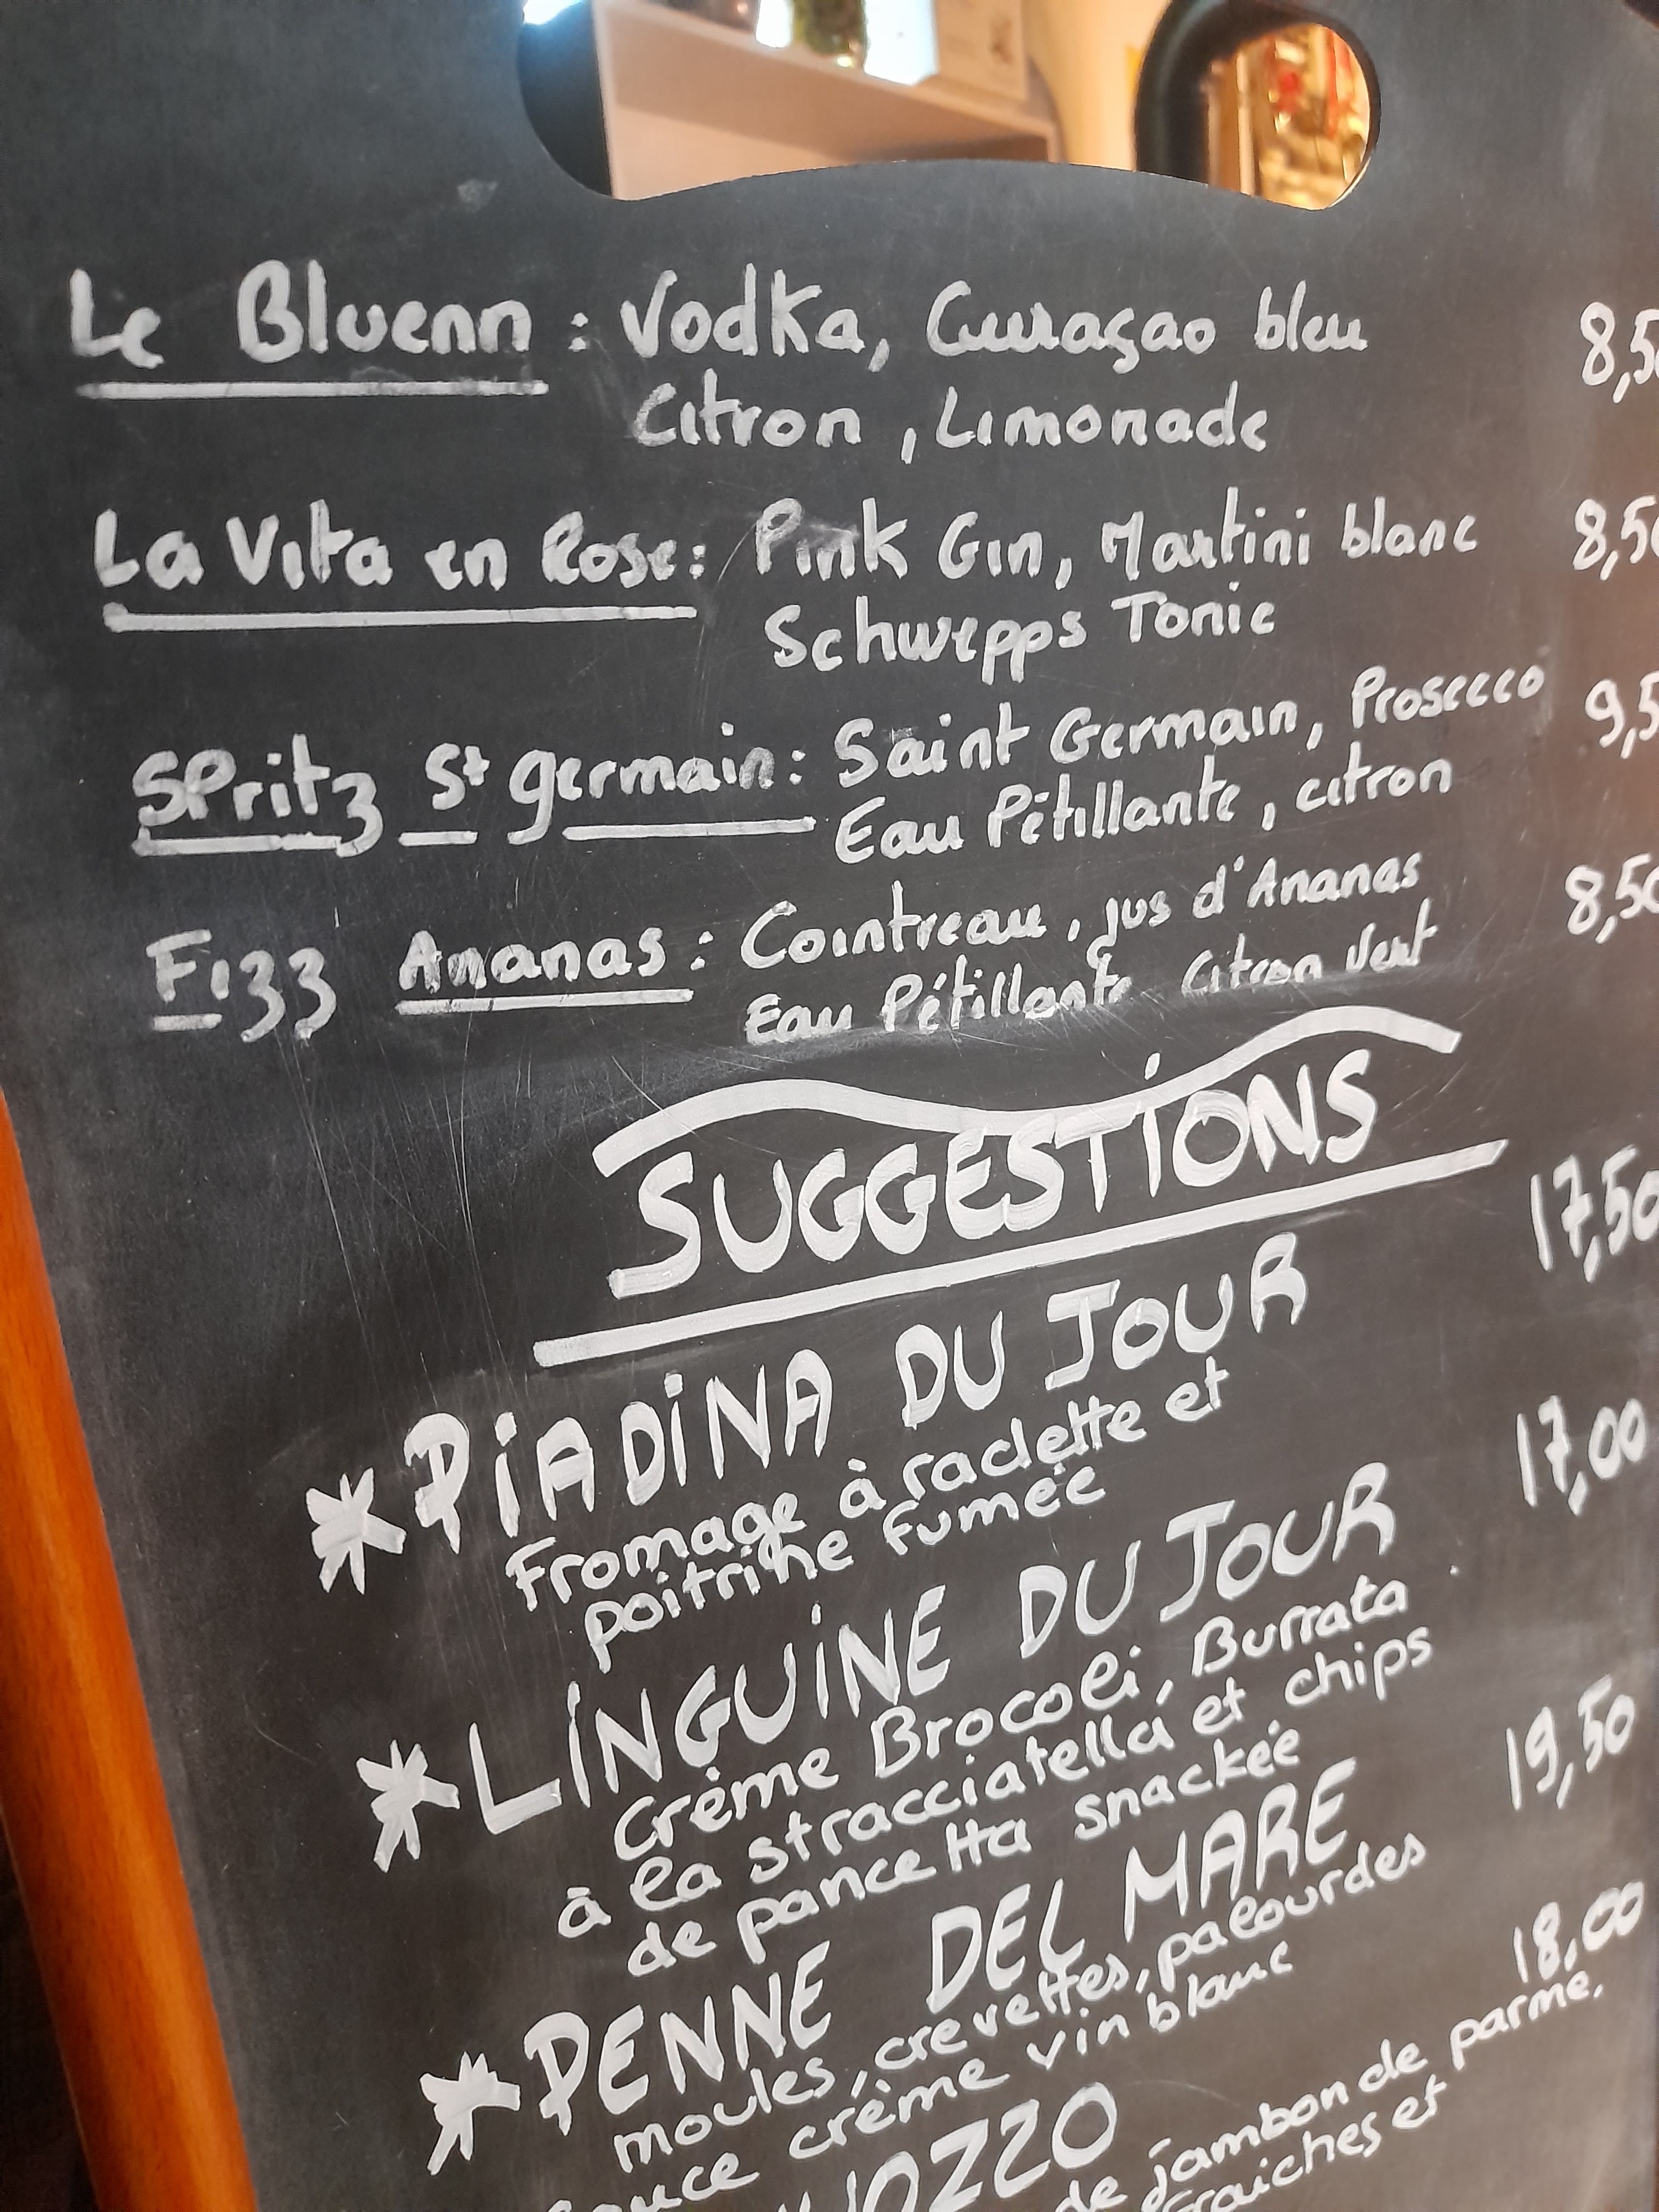 Le Bluenn : Vodka, Curaçao bleu 8,5
Citron , Limonade
La Vita en Rose : Pink Gin, Martini blanc 8,50
Schwepps Tonic
SPritz St germain : Saint Germain, Prosecco 9,5
Eau Pétillante, citron
Fizz Ananas : Cointreau, jus d'Ananas 8,50
Eau Pétillante Citron Vert
SUGGESTIONS
* PIADINA DU JOUR 17,50
Fromage à raclette et
poitrine fumée
* LINGUINE DU JOUR 17,00
Crème Brocoli, Burrata
à la stracciatella et chips
de pancetta snackée
* PENNE DEL MARE 19,50
moules, crevettes, palourdes
sauce crème vin blanc
OZZO 18,00
de jambon de parme,
fraîches et